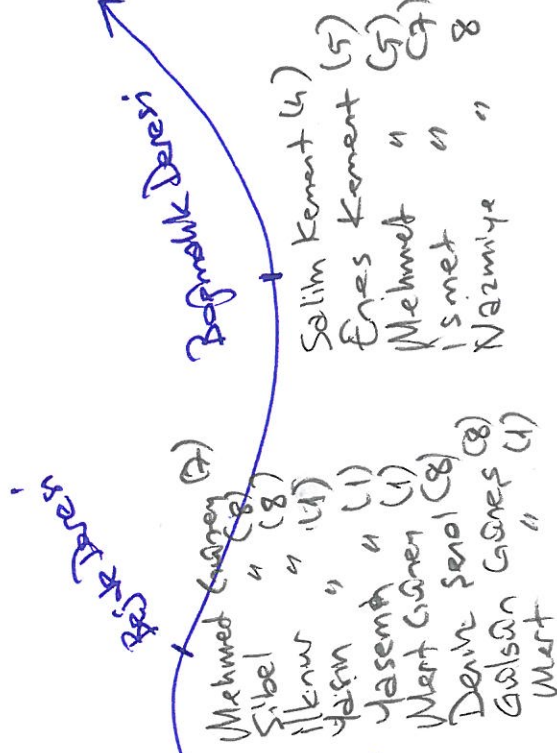 Deresi
Mehmed Güner (7)
Sibel " (8)
İlknur " (8)
Yasin " (1)
Yasemin " (1)
Mert Güner (8)
Deniz Şenol (8)
Gülsün Güneş (8)
Mert " (1)
Deresi
Salim Kement (4)
Enes Kement (5)
Mehmet " (5)
İsmet " (7)
Nazmiye " 8